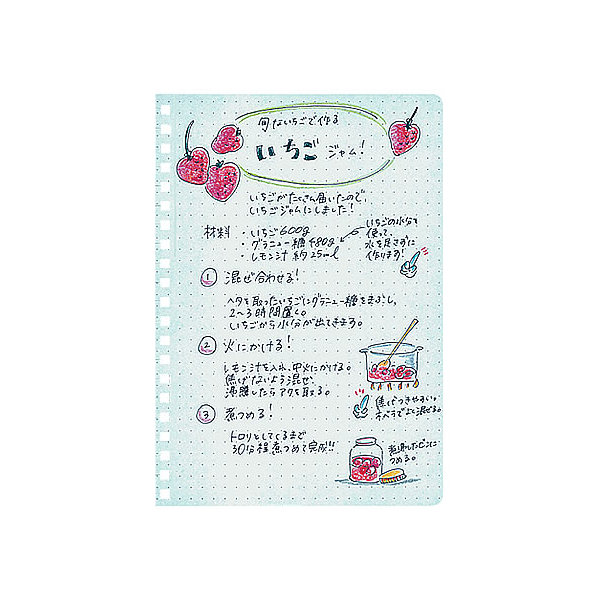 旬ないちごで作る
いちごジャム!
いちごがたくさん届いたので、
いちごジャムにしました!
材料 ・いちご600g
・グラニュー糖480g
・レモン汁 約25ml
いちごの水分を
使って、
水を足さずに
作ります!
① 混ぜ合わせる!
ヘタを取ったいちごにグラニュー糖をまぶし、
2〜3時間置く。
いちごから水分が出てきます。
② 火にかける!
レモン汁を入れ、中火にかける。
焦げないよう混ぜ、
沸騰したらアクを取る。
焦げつきやすい。
木べらでよく混ぜる。
③ 煮つめる!
トロリとしてくるまで
30分程煮つめて完成!!
煮沸したビンに
つめる。